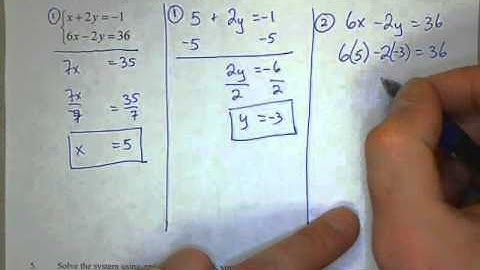 ① x + 2y = -1
6x - 2y = 36
7x = 35
7x/7 = 35/7
x = 5
① 5 + 2y = -1
-5 -5
2y/2 = -6/2
y = -3
② 6x - 2y = 36
6(5) - 2(-3) = 36
5. Solve the system using